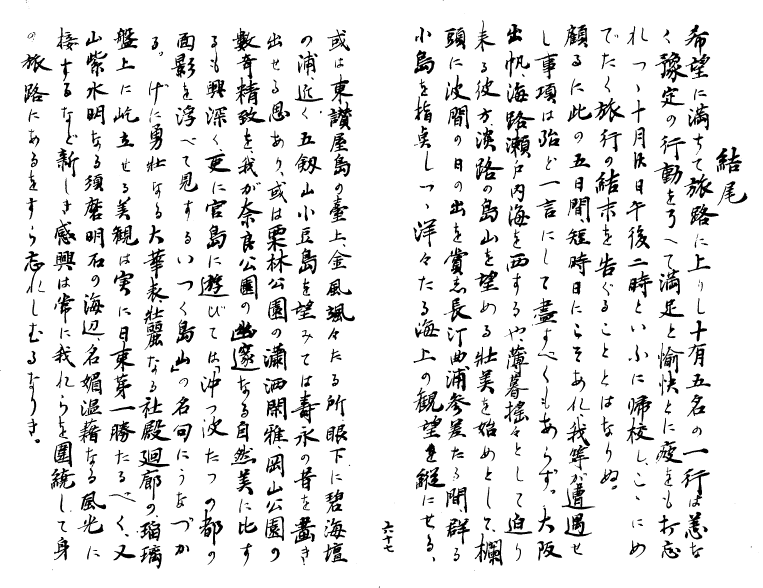 結尾
希望に満ちて旅路に上りし十有五名の一行は恙な
く豫定の行動を了へて満足と愉快とに疲をも打忘
れつゝ十月廿日午後二時といふに帰校し、こゝにめ
でたく旅行の結末を告ぐることとはなりぬ。
顧るに此の五日間短時日にこそあれ、我等が遭遇せ
し事項は殆ど一言にして盡すべくもあらず。大阪
出帆、海路瀬戸内海を西するや薄暮搖々として迫り
来る彼方、淡路の島山を望める壮美を始めとして、欄
頭に波間の日の出を賞し、長汀曲浦参差たる間、群る
小島を指点しつゝ洋々たる海上の観望を縦にせる、
六十七
或は東讃屋島の臺上、金風颯々たる所眼下に碧海壇
の浦、近く五剱山小豆島を望みては壽永の昔を畫き
出せる思あり、或は栗林公園の瀟洒閑雅岡山公園の
數奇精致を我が奈良公園の幽邃なる自然美に比す
るも興深く、更に宮島に遊びては「沖つ波たつの都の
面影を浮べて見するいつく島山」の名句にうなづか
る。げに勇壮なる大華表、壮麗なる社殿廻廊の瑠璃
盤上に屹立せる美観は実に日東第一勝たるべく、又
山紫水明なる須磨明石の海辺、名媚温藉なる風光に
接するなど新しき感興は常に我れらを圍繞して身
の旅路にあるをすら忘れしむるなりき。